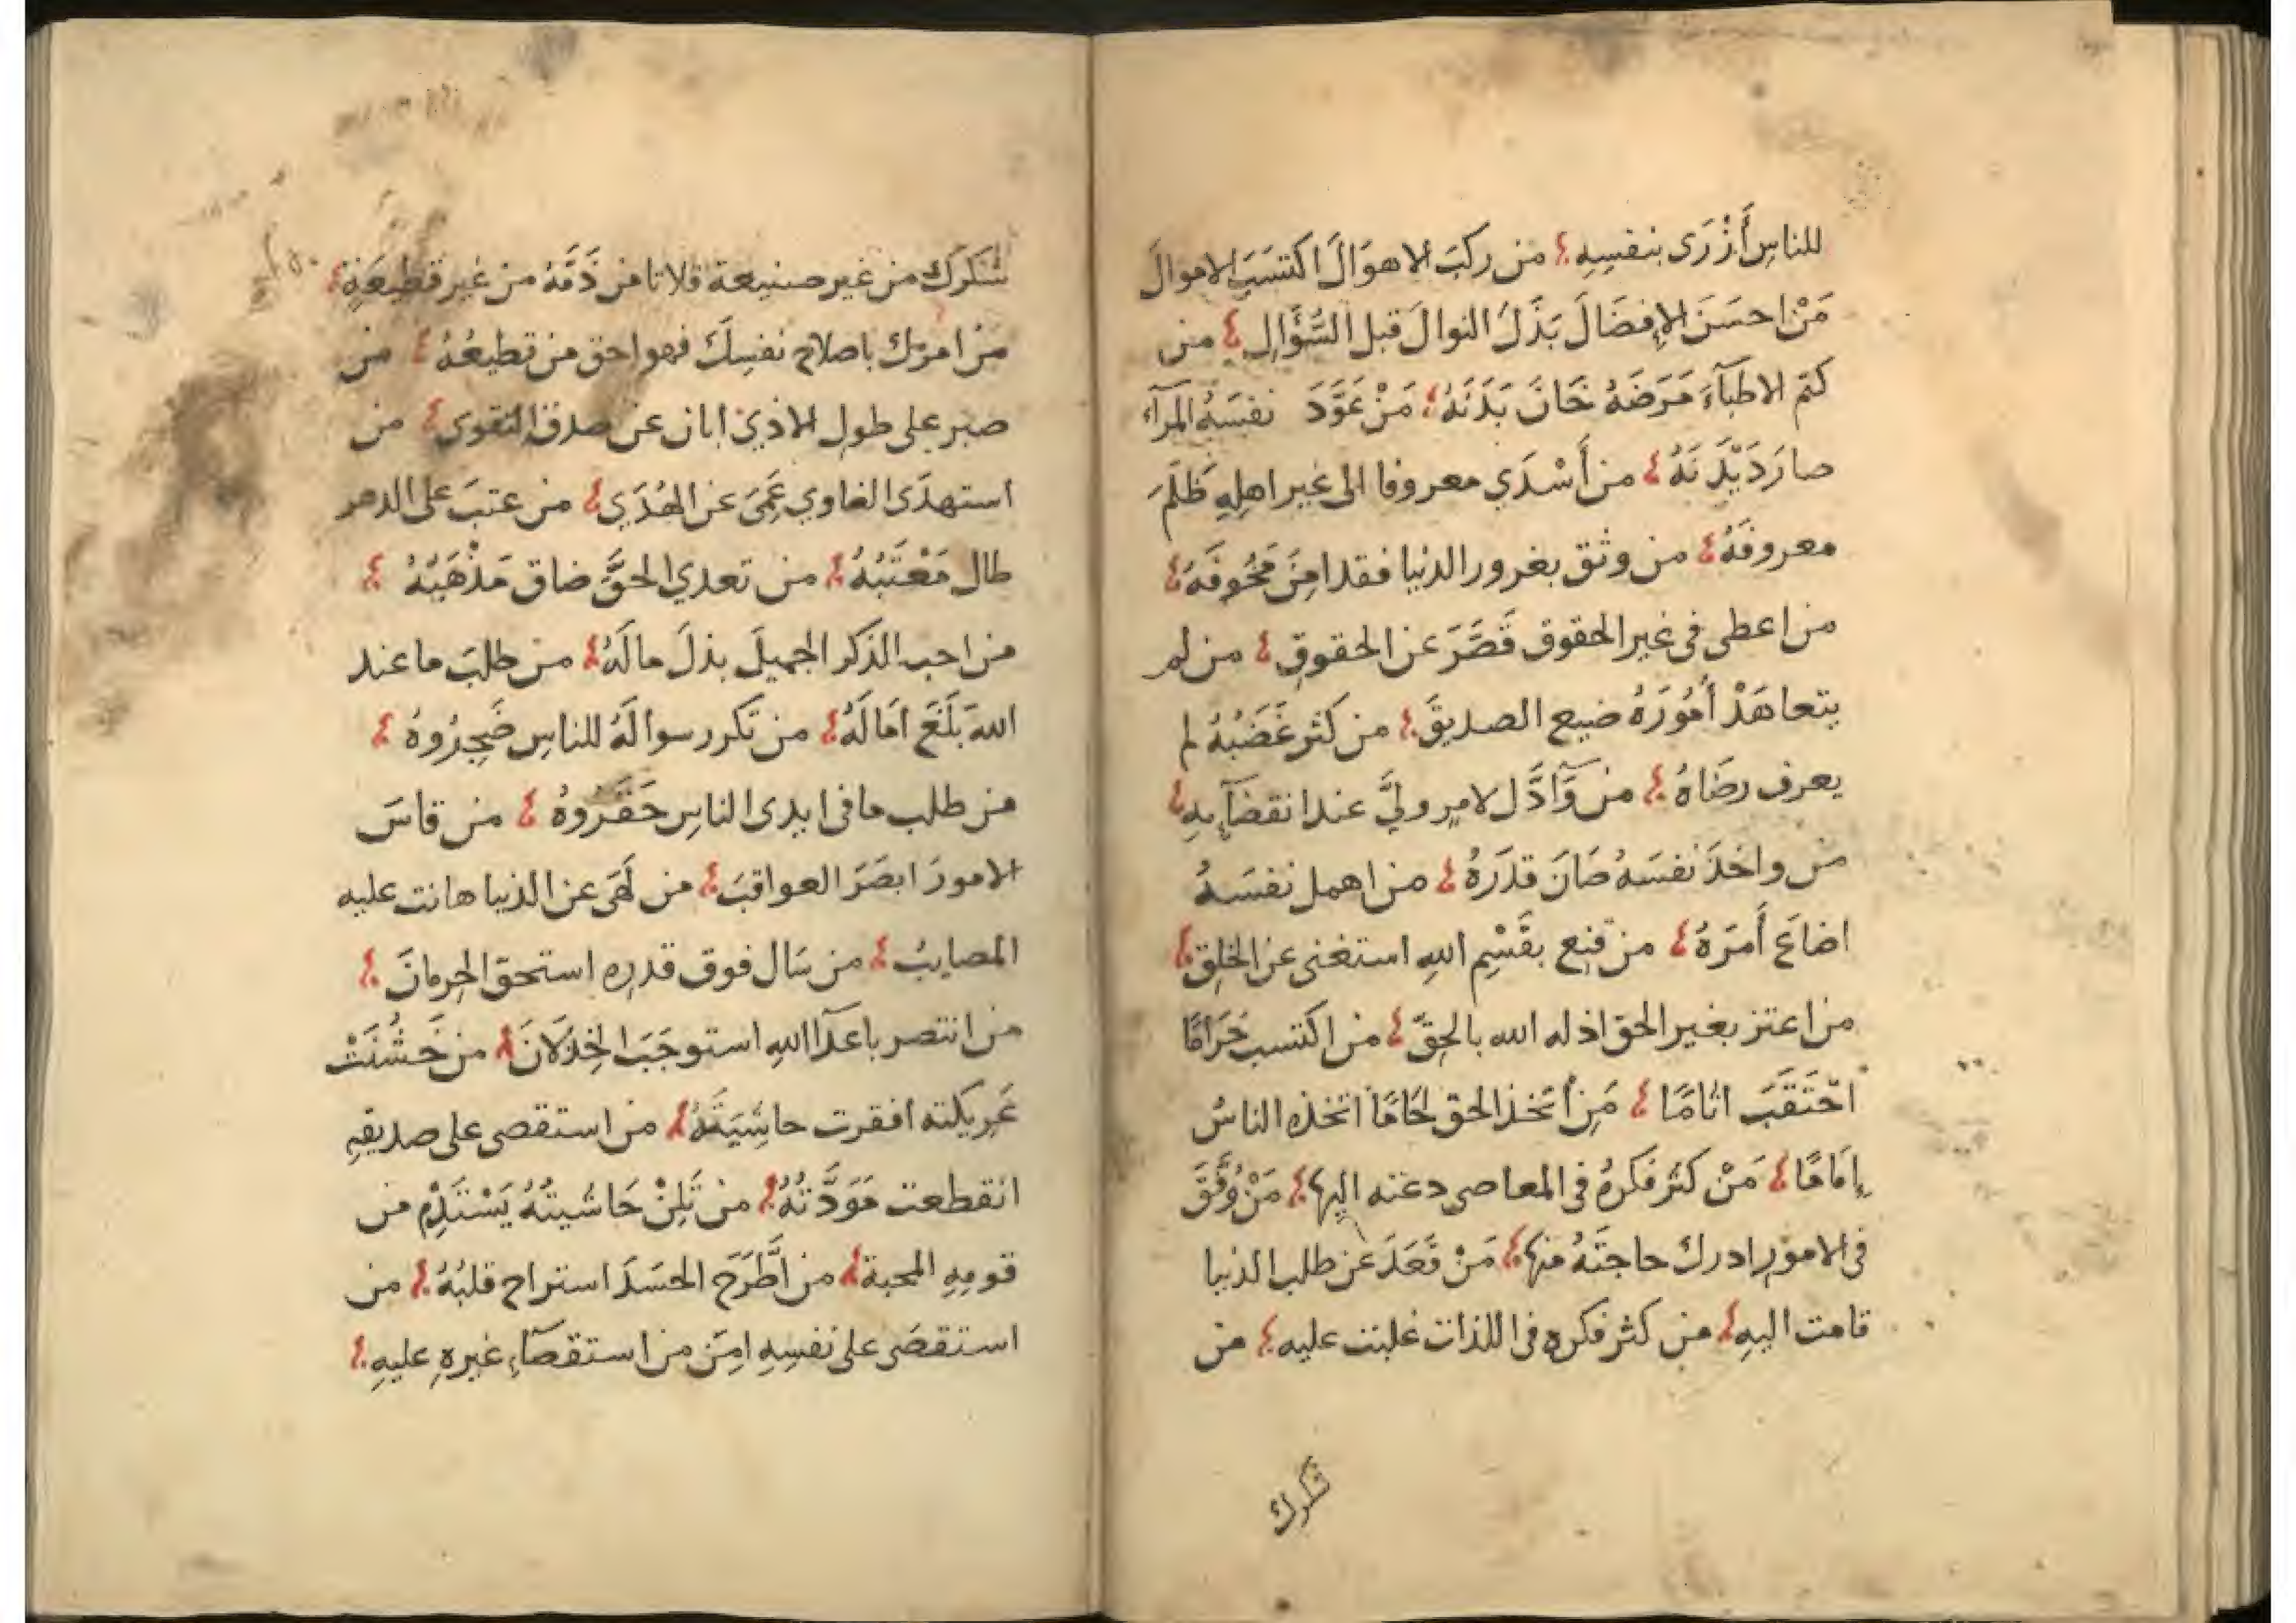 للناسِ أَزْرَى بنفسِهِ من ركبَ الاهوَالَ اكتسَبَ الاموالَ
مَنْ احسَنَ الإفضَالَ بَذَلَ النوالَ قبل السُّؤَالِ من
كتمَ الاطبآءَ مَرَضَهُ خَانَ بَدَنَهُ مَنْ عَوَّدَ نفسَهُ المرآء
صارَ دَيْدَنَهُ من أَسْدَي معروفا الى غير اهلِهِ ظَلَمَ
معروفَهُ من وثق بغرور الدنيا فقد امِنَ مَخُوفَهُ
من اعطى فى غير الحقوق قَصَّرَ عن الحقوقِ من لم
يتعاهَدْ أُمُورَهُ ضيع الصديقَ من كثر غَضَبُهُ لم
يعرف رضَاهُ من وَآدَّ لامرٍ وليَّ عند انقضآيهِ
من واخذَ نفسَهُ صَانَ قدَرَهُ من اهمل نفسَهُ
اضاعَ أَمرَهُ من قنِع بقَسْمِ اللهِ استغنى عن الخلقِ
من اعتز بغير الحق اذله الله بالحقَّ من اكتسب حَرَامًا
احْتَقَبَ اثامًا مَن أتخذ الحق لجَامًا اتخذه الناسُ
إِمَامًا مَنْ كثر فكرهُ فى المعاصى دعته اليها مَنْ وُفِّقَ
فى الامورِ ادرك حاجتَهُ منها مَنْ قَعَدَ عن طلب الدنيا
قامت اليهِ من كثر فكره فى اللذات غلبت عليه من
شكرك
شكَرَك من غير صنيعة فلا تامن ذَمَّهُ من غير قطيعَةٍ
من امرَك باصلاح نفسِكَ فهو احق من تطيعُهُ من
صبر على طول الاذيَ ابان عن صدق التقوى من
استهدَى الغاوي عَمَىَ عن الهُدَي من عتبَ على الدهر
طال مَعْتَبُهُ من تعدي الحقَّ ضاق مَذْهَبُهُ
من احب الذكر الجميلَ بذلَ مالَهُ من طلبَ ما عند
اللهَ بَلَغَ امَالَهُ من تكرر سوالَهُ للناسِ ضَجِرُوهُ
من طلب ما فى ايدى الناسِ حَقَرُوهُ من قاسَ
الامورَ ابصَرَ العواقبَ من لَهَى عن الدنيا هانت عليه
المصايبُ من سَال فوق قدرِه استحق الحِرمانَ
من انتصر باعدآ اللهِ استوجَبَ الخِذْلَانَ من خَشُنَتْ
عَرِيكته افقرت حاشِيَتُهُ من استقصى على صديقهِ
انقطعت مَوَدَّتُهُ من تَلِنْ حَاشيتُهُ يَسْتَدِمْ من
قومِهِ المحبة من اطَّرَحَ الحسَدَ استراح قلبُهُ من
استقصَى على نفسِهِ امِنَ من استقصآءِ غيرهِ عليهِ